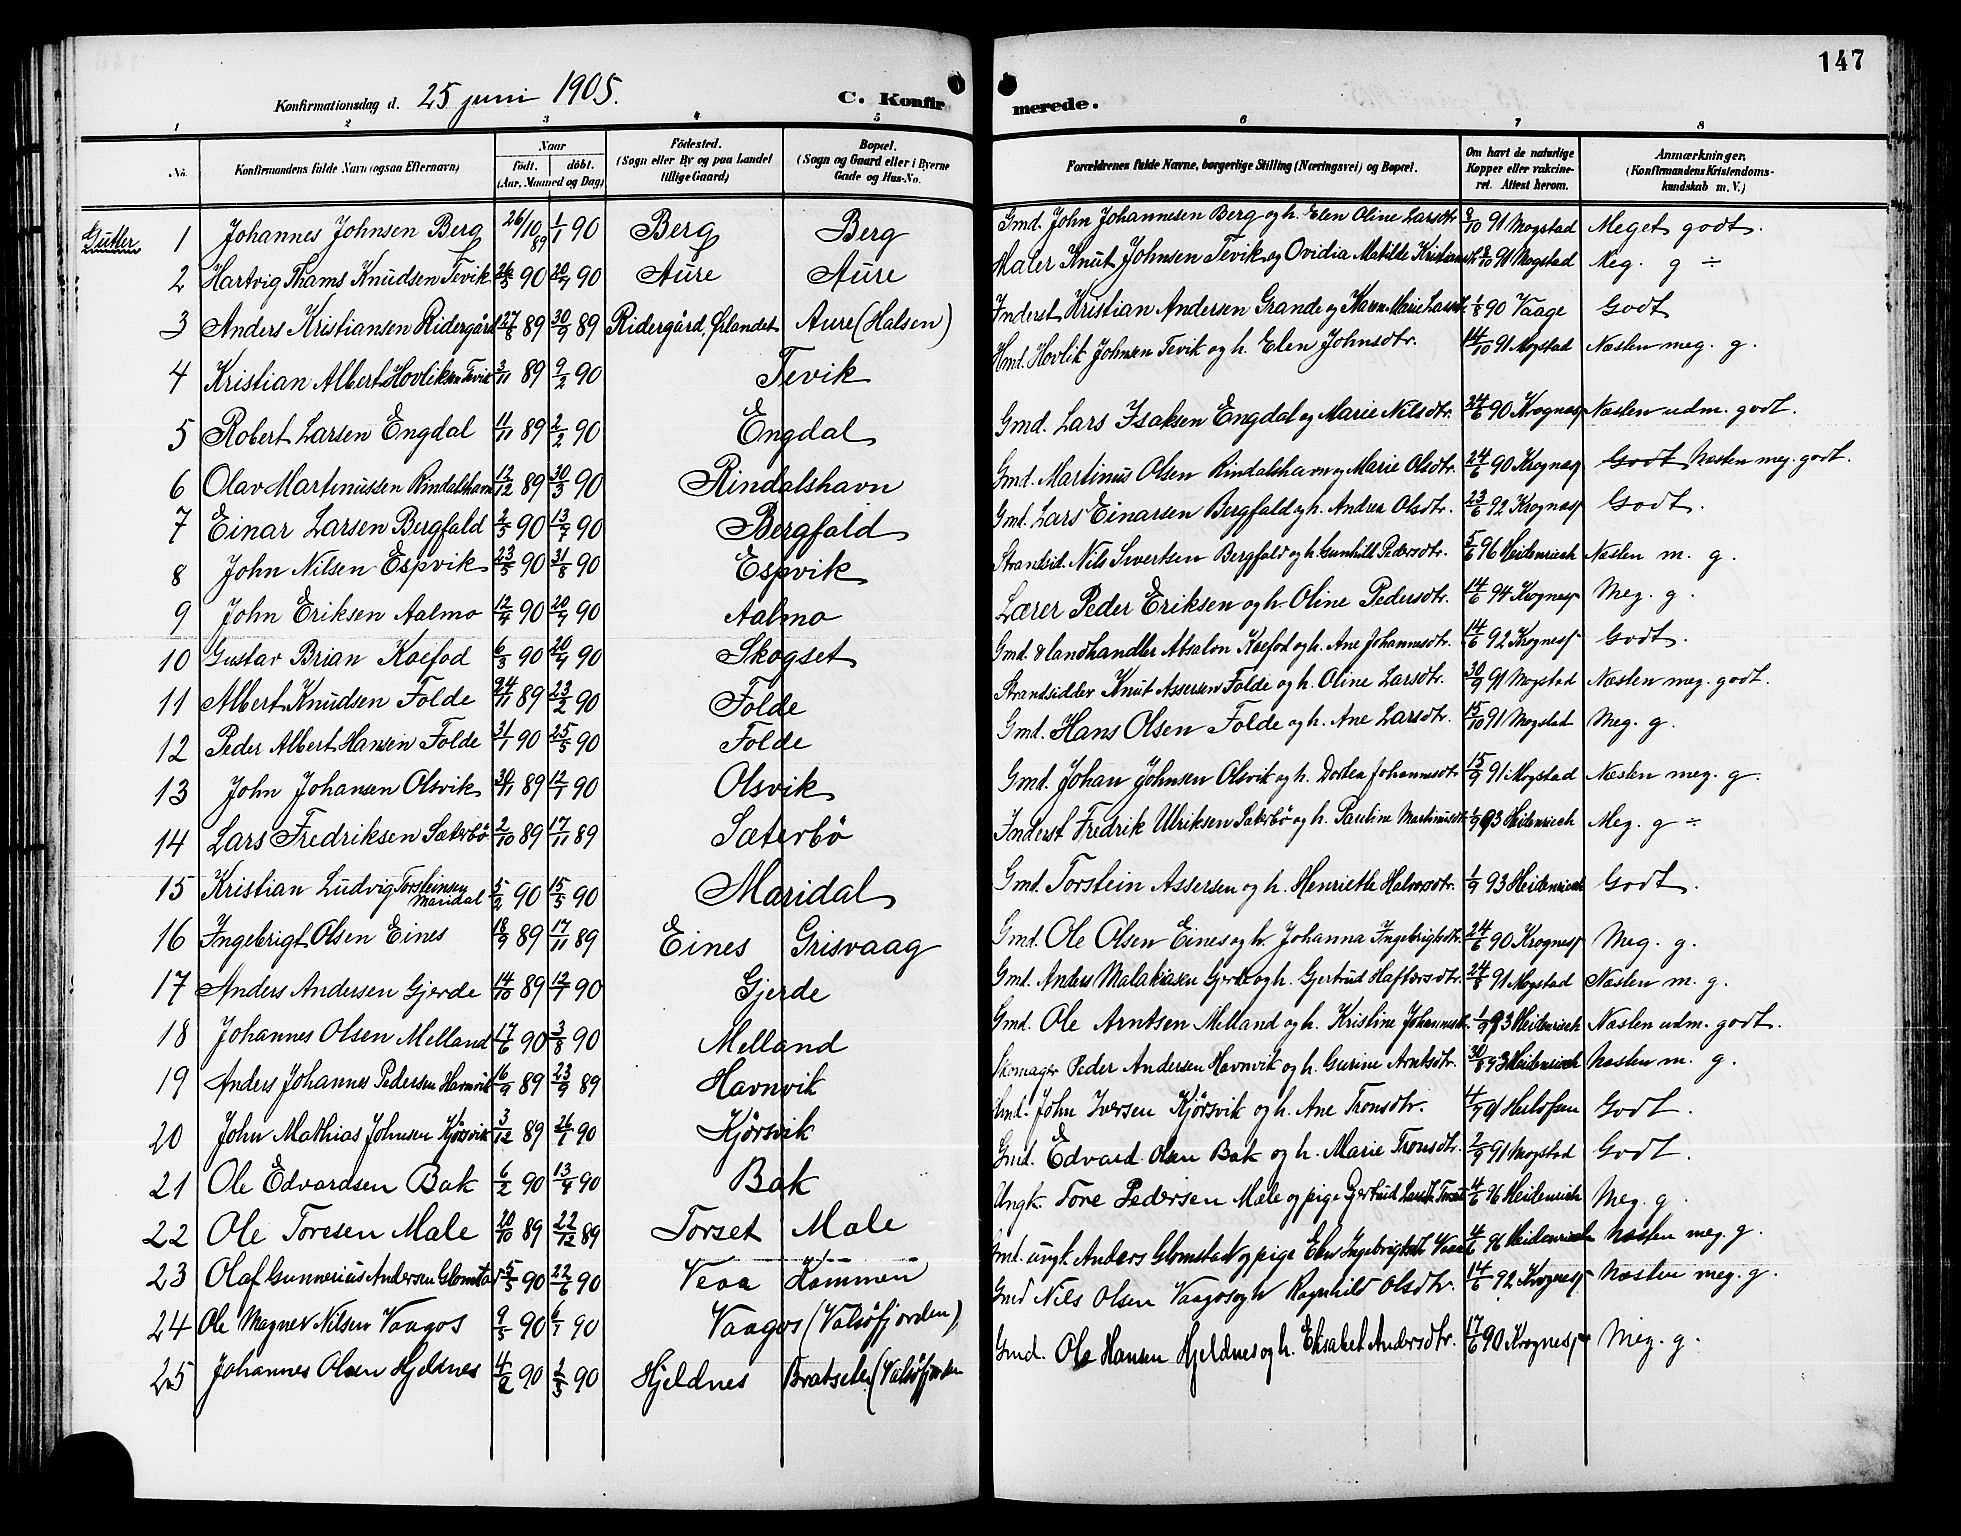 147
Konfirmationsdag d. 25 juni 1905. C. Konfirmerede.
1 2 3 4 5 6 7 8
No. Konfirmandens fulde Navn (ogsaa Efternavn) Naar født. døbt. (Aar, Maaned og Dag) Fødested. (Sogn eller By og paa Landet tillige Gaard) Bopæl. (Sogn og Gaard eller i Byerne Gade og Hus-No. Forældrenes fulde Navne, borgerlige Stilling (Næringsvei) og Bopæl. Om havt de naturlige Kopper eller vakcineret. Attest herom. Anmærkninger. (Konfirmandens Kristendomskundskab m. V.)
Gutter
1 Johannes Johnsen Berg 26/10 89 1/1 90 Berg Berg Gmd. John Johannesen Berg og h. Elen Oline Larsdtr 8/10 91 Mogstad Meget godt.
2 Hartvig Thams Knudsen Tevik 26/3 90 20/4 90 Aure Aure Maler Knut Johnsen Tevik og Ovidia Matilde 8/10 91 Mogstad Meg. g ÷
3 Anders Kristiansen Ridergård 27/8 89 30/9 89 Ridergård, Ørlandet Aure (Halsen) Inderst Kristian Andersen Grande og Karen Marie 1/8 90 Vaage Godt
4 Kristian Albert Hovliksen Tevik 3/11 89 9/2 90 Tevik Hmd. Hovlik Johnsen Tevik og h. Elen Johnsdtr. 14/10 91 Mogstad Næsten meg. g.
5 Robert Larsen Engdal 11/11 89 2/2 90 Engdal Gmd. Lars Isaksen Engdal og Marie Nilsdtr. 24/6 90 Krogness Næsten udm. godt.
6 Olav Martinussen Rindalshavn 12/12 89 30/3 90 Rindalshavn Gmd. Martinus Olsen Rindalshavn og Marie Olsdtr. 24/6 90 Krogness Godt Næsten meg. godt.
7 Einar Larsen Bergfald 2/5 90 13/7 90 Bergfald Gmd. Lars Einarsen Bergfald og h. Andrea Olsdtr. 23/6 92 Krogness Godt.
8 John Nilsen Espvik 23/5 90 31/8 90 Espvik Strandsid. Nils Sivertsen Bergfald og h. Gunhild Pedersdtr. 5/6 96 Heidenreich Næsten m. g.
9 John Eriksen Aalmo 12/4 90 20/4 90 Aalmo Lærer Peder Eriksen og h. Oline Pedersdtr. 14/6 94 Krogness Meg. g.
10 Gustav Brian Koefod 6/3 90 20/4 90 Skogset Gmd. & landhandler Absalon Koefod og h. Ane Johannesdtr. 14/6 92 Krogness Godt.
11 Albert Knudsen Folde 24/11 89 23/2 90 Folde Strandsidder Knut Assersen Folde og h. Oline Larsdtr. 30/9 91 Mogstad Næsten meg. godt.
12 Peder Albert Hansen Folde 31/1 90 25/5 90 Folde Gmd. Hans Olsen Folde og h. Ane Larsdtr. 15/10 91 Mogstad Meg. g.
13 John Johansen Olsvik 30/11 89 12/1 90 Olsvik Gmd. Johan Johnsen Olsvik og h. Dortea Johannesdtr 15/9 91 Mogstad Næsten meg. g.
14 Lars Fredriksen Sæterbö 2/10 89 17/11 89 Sæterbö Inderst Fredrik Ulriksen Sæterbö og h. Pauline Martinusdtr 1/9 93 Heidenreich Meg. g ÷
15 Kristian Ludvig Torsteinsen Maridal 5/2 90 15/5 90 Maridal Gmd. Torstein Assersen og h. Henriette Halvorsdtr. 1/9 93 Heidenreich Godt.
16 Ingebrigt Olsen Eines 18/9 89 17/11 89 Eines Grisvaag Gmd. Ole Olsen Eines og h. Johanna Ingebrigtsdtr. 24/6 90 Krogness Meg. g.
17 Anders Andersen Gjerde 14/10 89 12/1 90 Gjerde Gmd. Anders Malakiasen Gjerde og h. Gjertrud Haftorsdtr. 24/8 91 Mogstad Næsten m. g.
18 Johannes Olsen Melland 17/6 90 3/8 90 Melland Gmd. Ole Arntsen Melland og h. Kristine Johannesdtr. 1/9 93 Heidenreich Næsten udm. godt.
19 Anders Johannes Pedersen Havnvik 16/9 89 23/9 89 Havnvik Skomager Peder Andersen Havnvik og h. Gurine Arntsdtr. 30/8 93 Heidenreich Næsten m. g.
20 John Mathias Johnsen Kjörsvik 3/12 89 26/1 90 Kjörsvik Hmd. John Iversen Kjörsvik og h. Ane Tronsdtr. Godt.
21 Ole Edvardsen Bak 6/2 90 13/4 90 Bak Gmd. Edvard Olsen Bak og h. Marie Tronsdtr. 2/9 91 Mogstad Godt.
22 Ole Toresen Male 20/10 89 22/12 89 Torset Male Ungk. Tore Pedersen Male og pige Gjertrud Larsdtr. Torset 4/6 96 Heidenreich Meg. g.
23 Olaf Gunnerius Andersen Glomstad 5/5 90 22/6 90 Veaa Kommen Gmd. ungk. Anders Glomstad og pige Elen Ingebrigtsdtr 4/6 96 Heidenreich Næsten meg. g.
24 Ole Magner Nilsen Vaagos 9/5 90 6/7 90 Vaagos (Valsöfjorden) Gmd Nils Olsen Vaagos og h Ragnhild Olsdtr. 14/6 92 Krogness Næsten meg. g.
25 Johannes Olsen Hjeldnes 4/2 90 2/3 90 Hjeldnes Bratseter (Valsöfjorden Gmd. Ole Hansen Hjeldnes og h. Elisabet Andersdtr. 17/6 90 Krogness Meg. g.